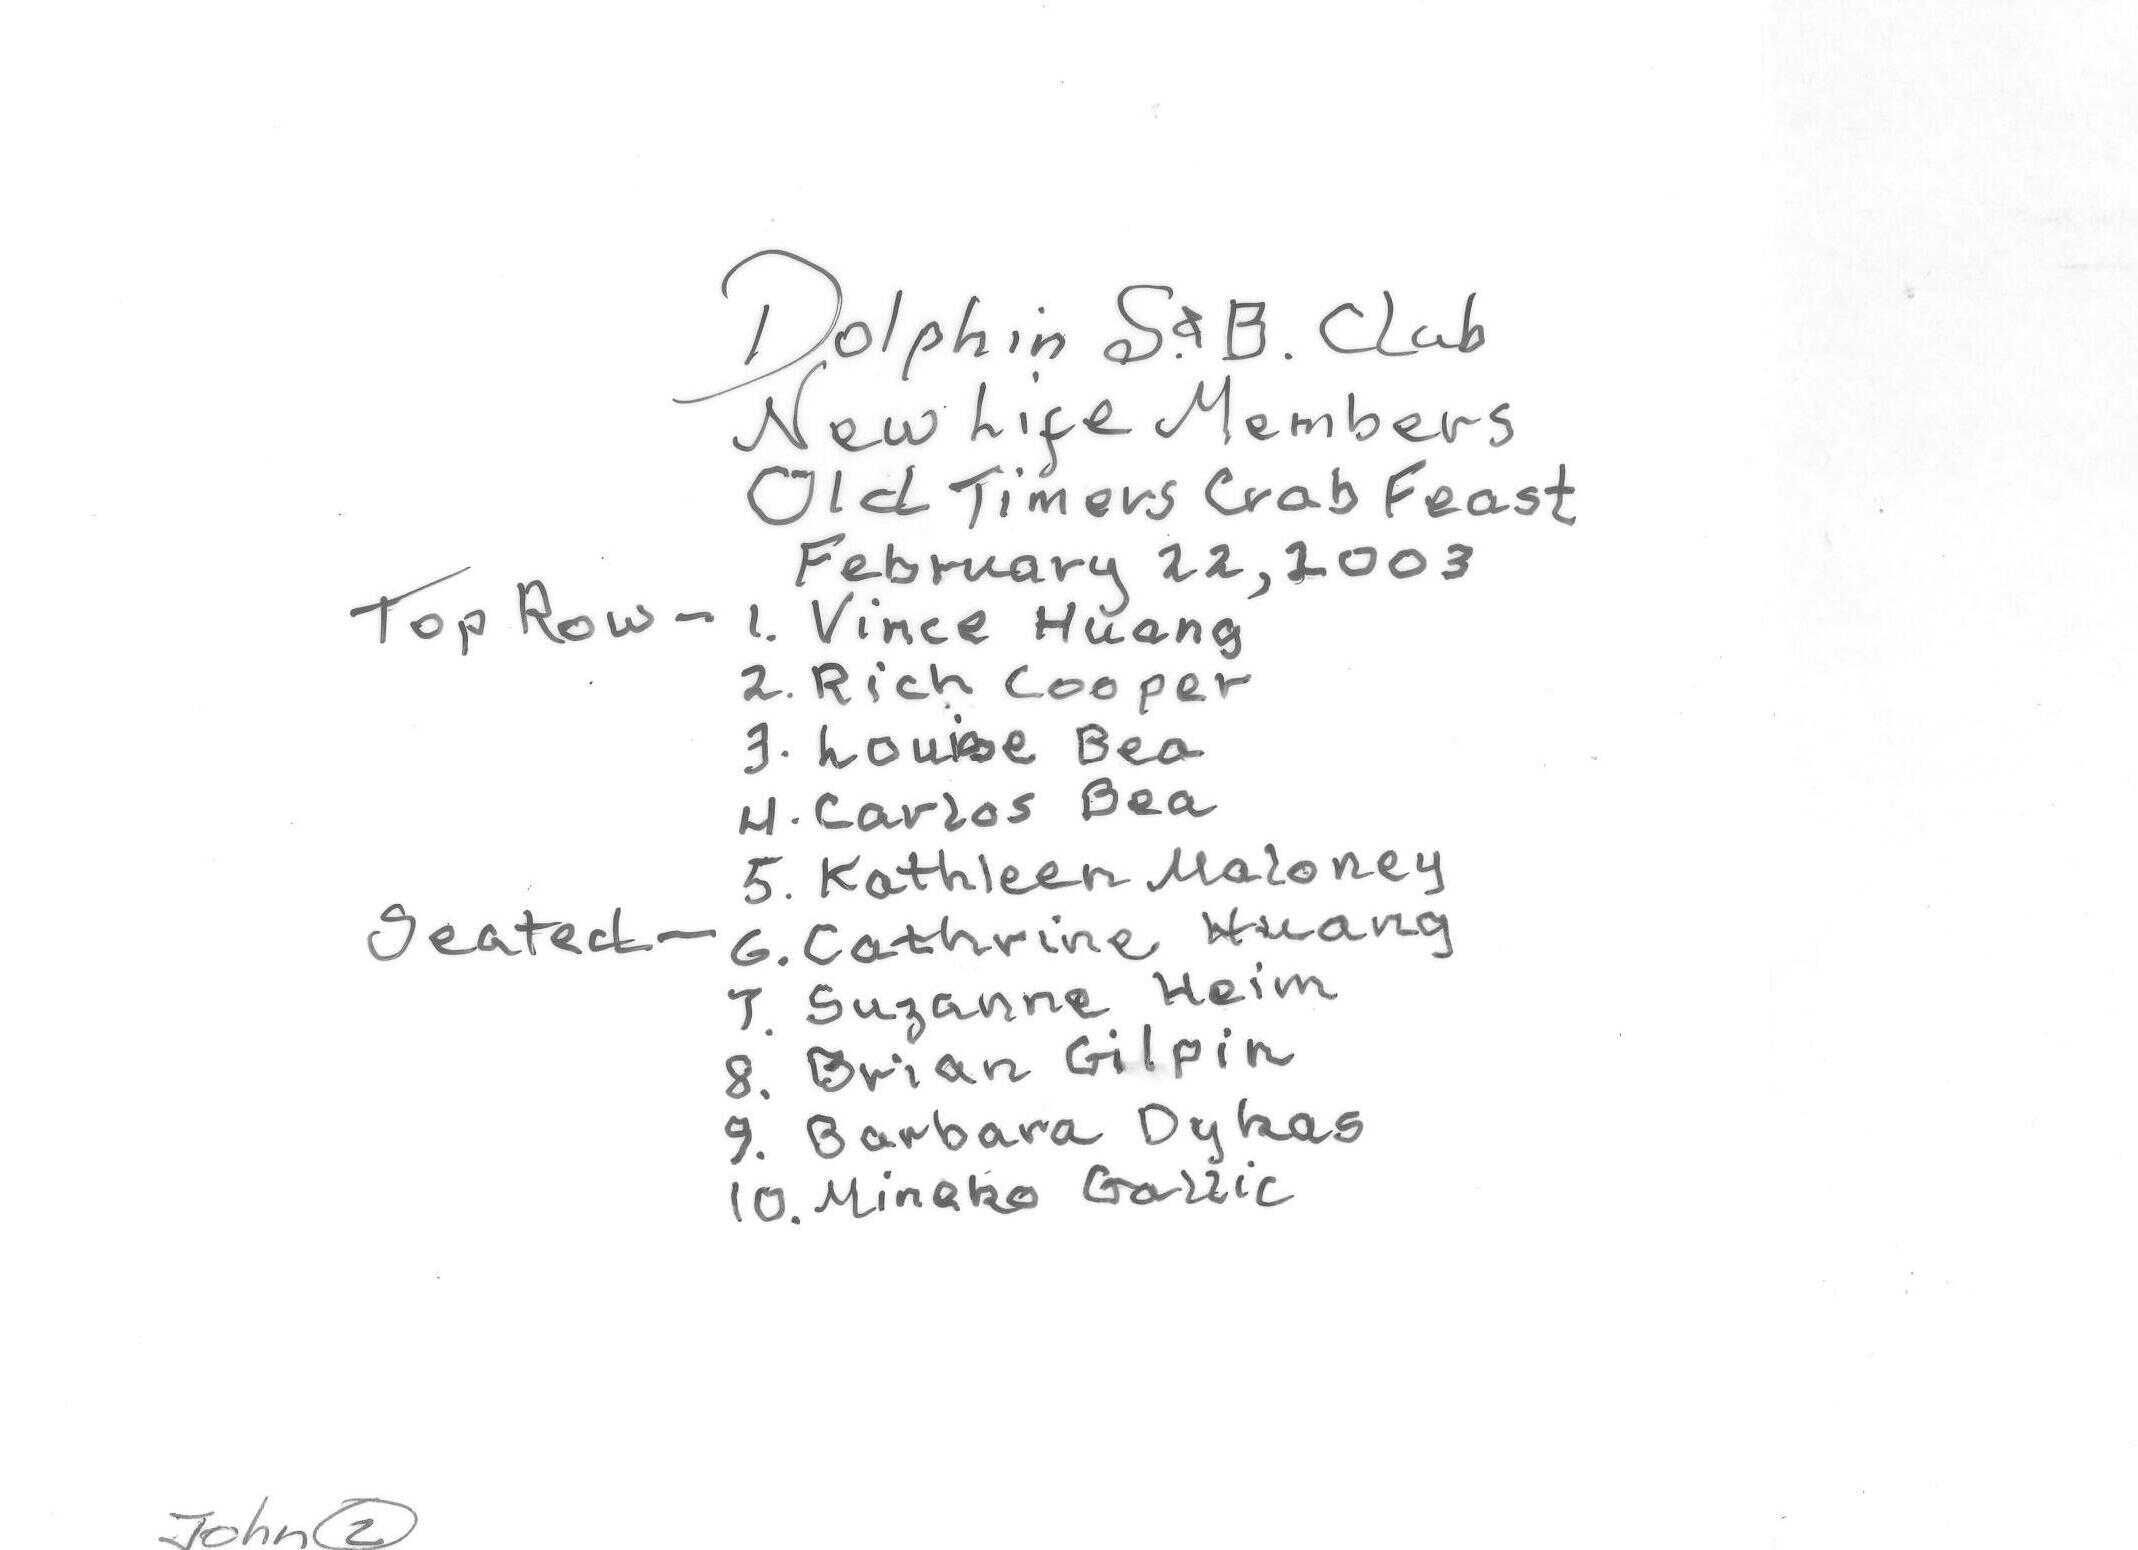 Dolphin S.& B. Club
New Life Members
Old Timers Crab Feast
February 22, 2003
Top Row - 1. Vince Huang
2. Rich Cooper
3. Louise Bea
4. Carlos Bea
5. Kathleen Maloney
Seated - 6. Cathrine Huang
7. Suzanne Heim
8. Brian Gilpin
9. Barbara Dykas
10. Mineko
John 2